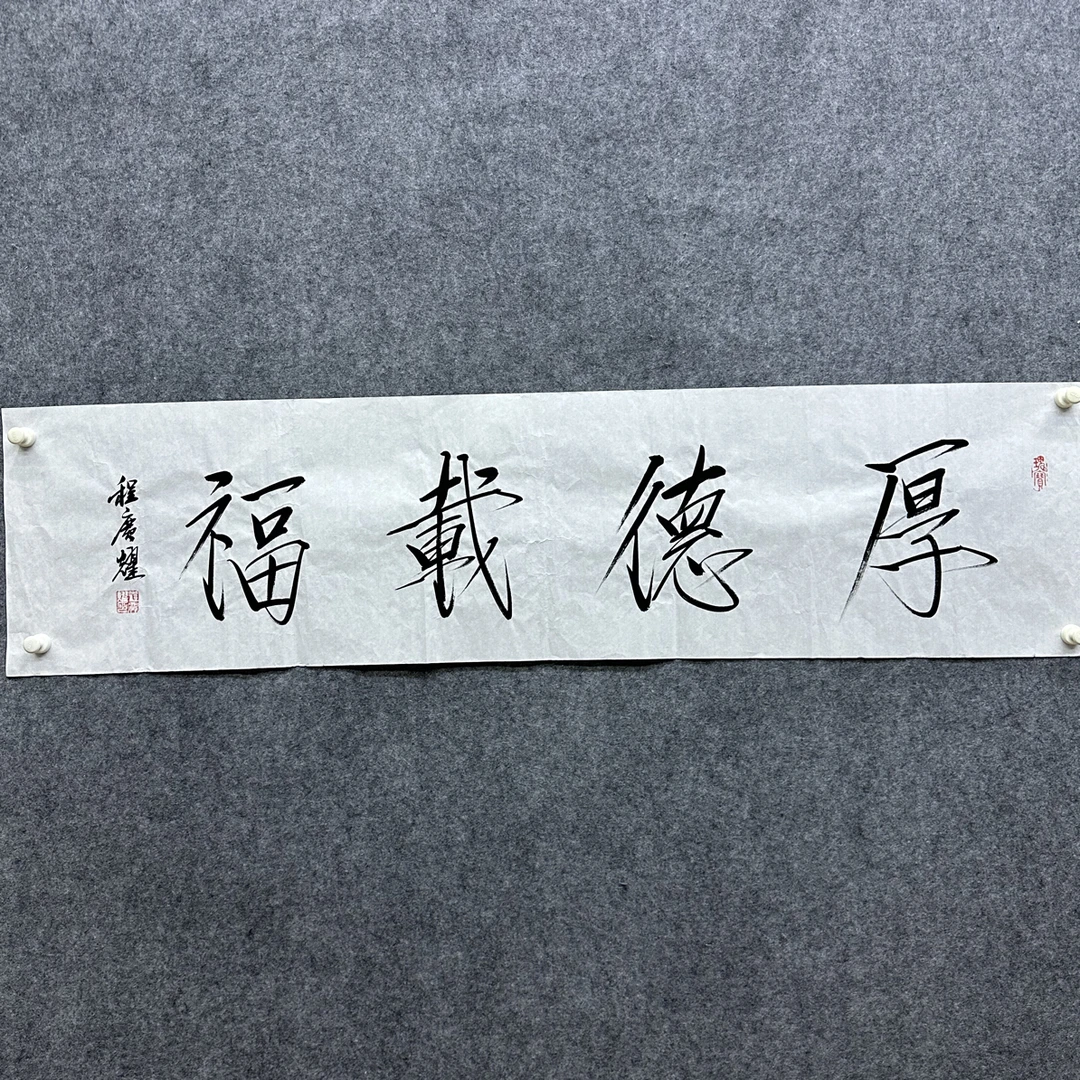 厚德載福
程廣耀